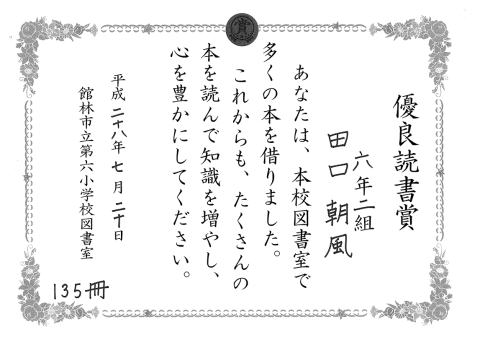 賞
優良読書賞
六年二組
田口 朝風
あなたは、本校図書室で
多くの本を借りました。
これからも、たくさんの
本を読んで知識を増やし、
心を豊かにしてください。
平成二十八年七月二十日
館林市立第六小学校図書室
135冊